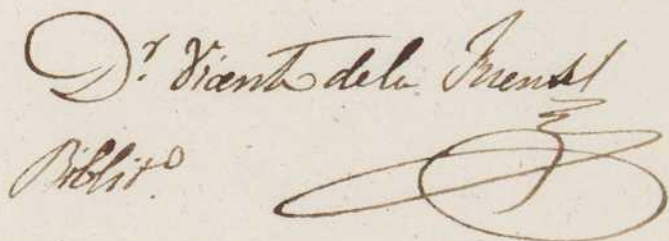 Dr. Vicente de la Fuente
Bibliot.º